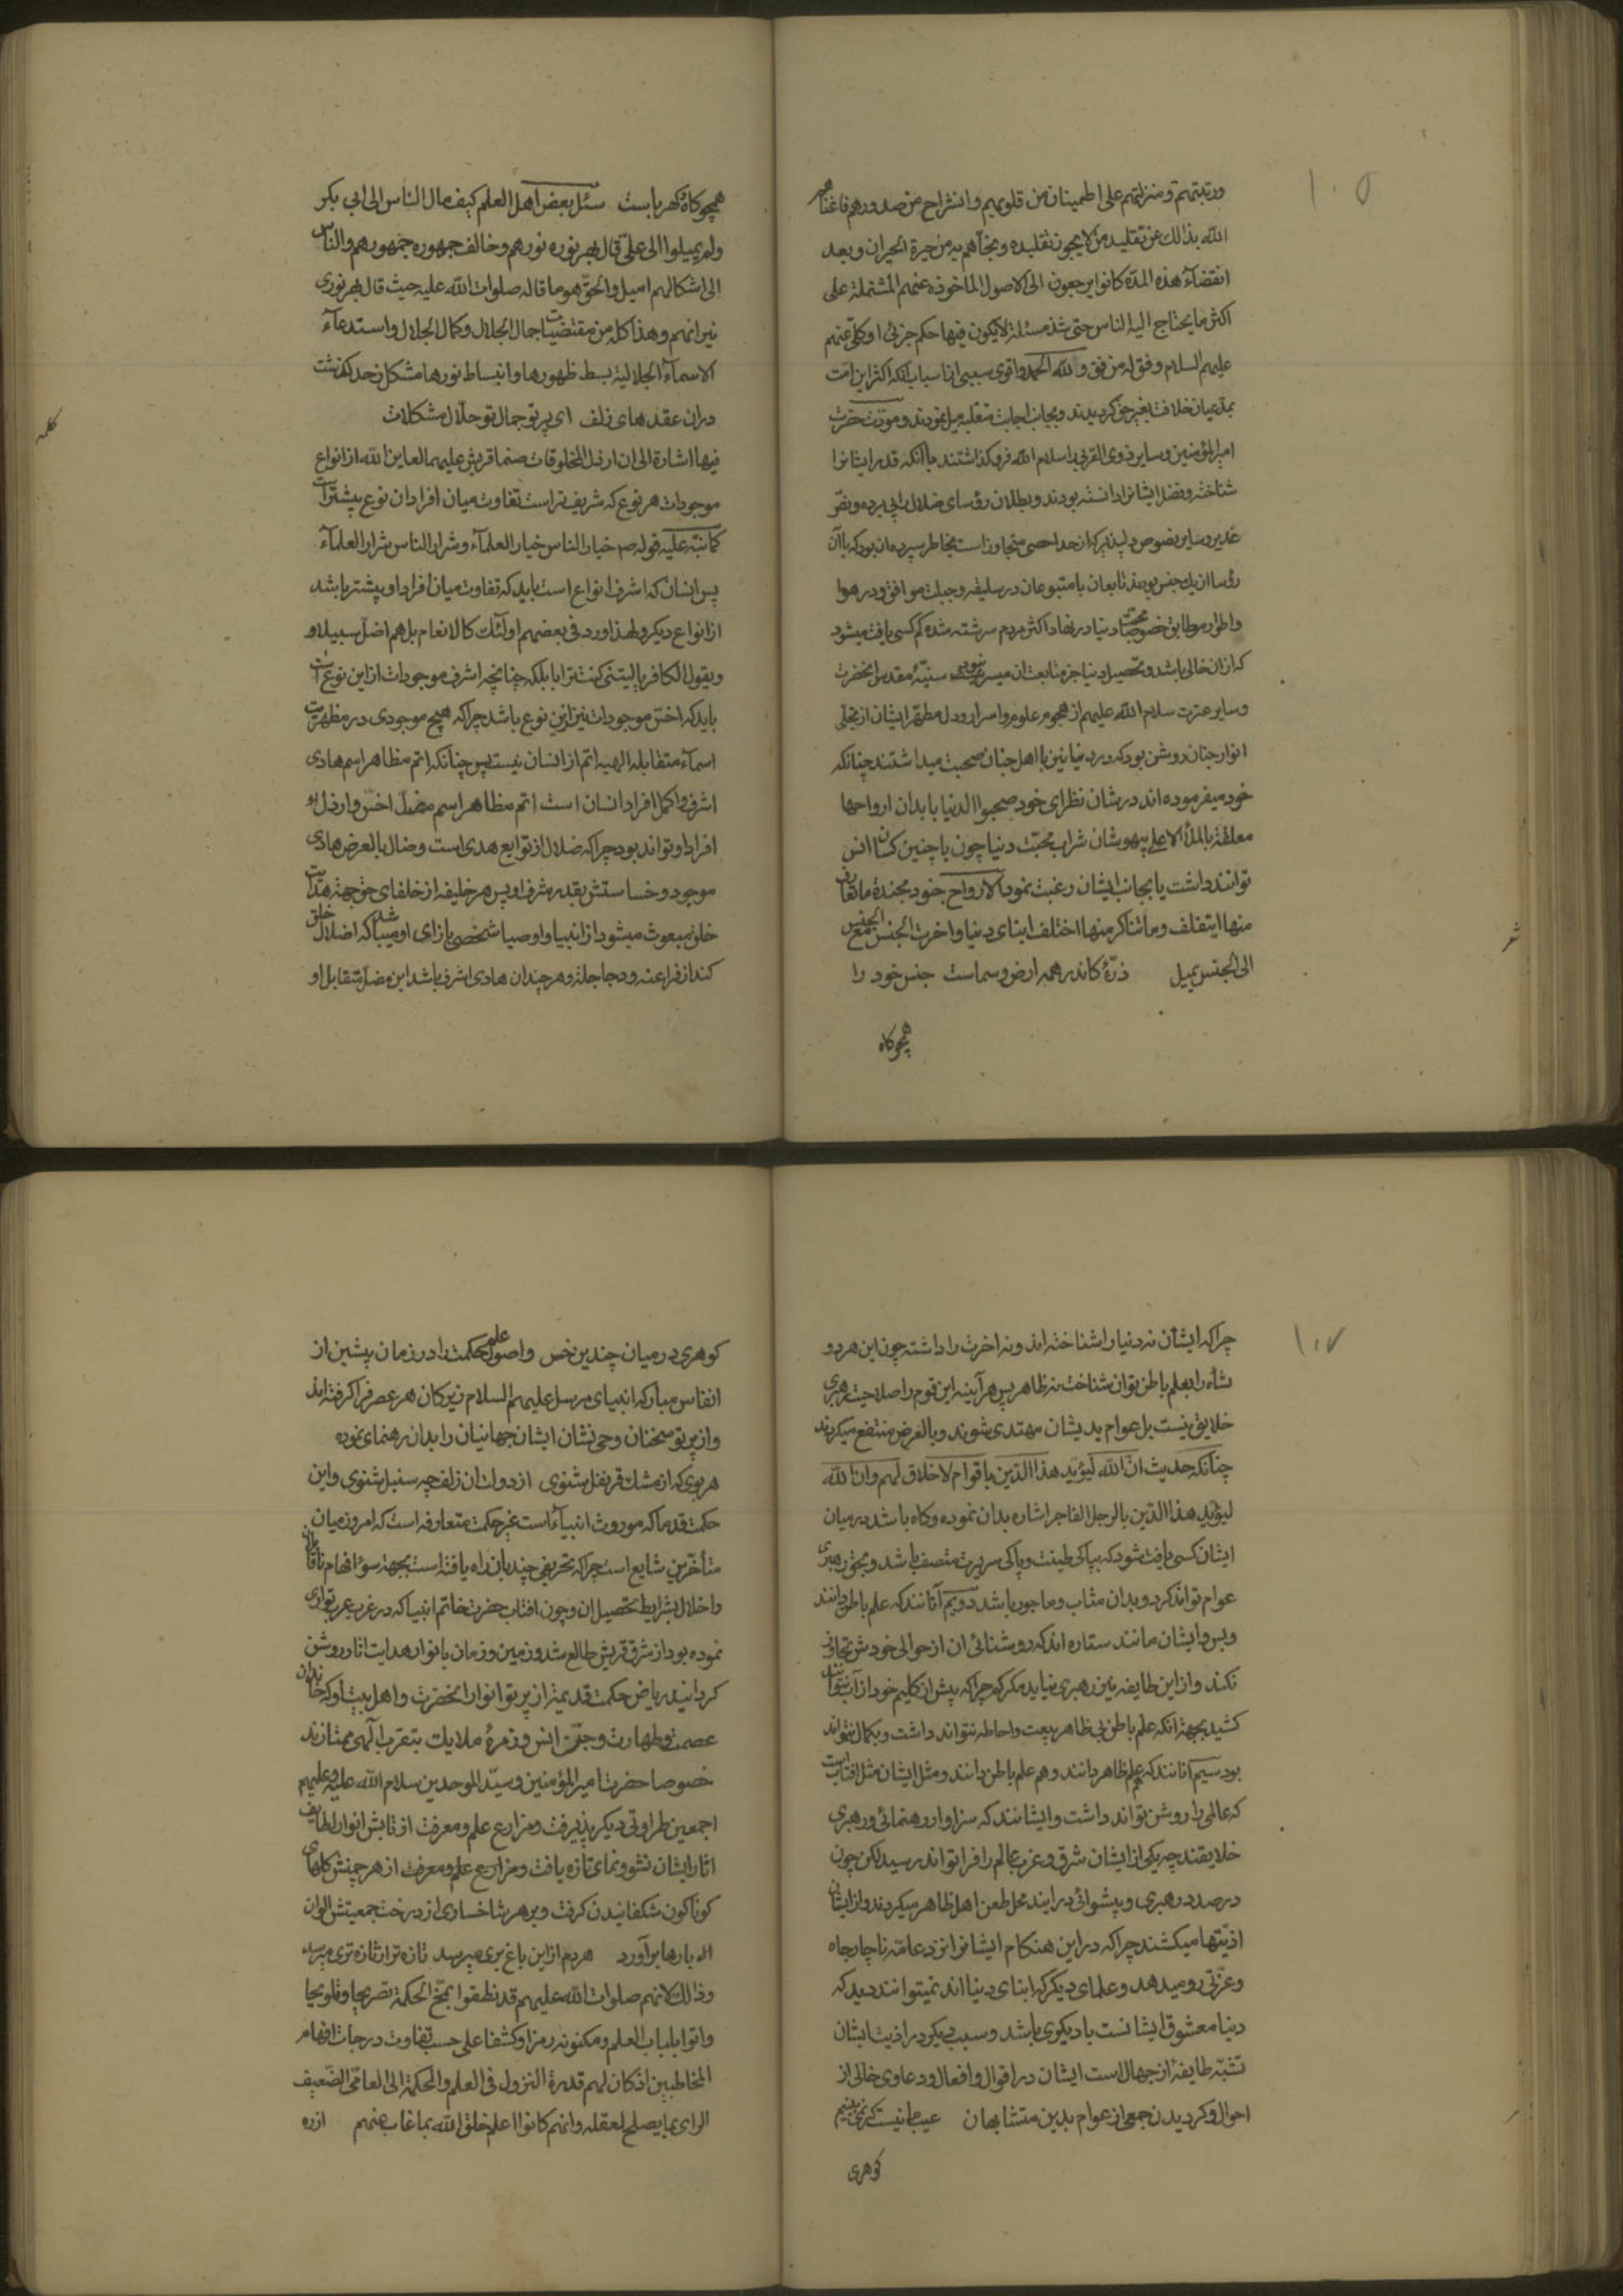 ١٠٥
ورتبتهم ومنزلتهم على اطمينان من قلوبهم وانشراح من صدورهم فاغناهم
الله بذلك عن تقليد من لا يجوز تقليده ونجاهم به من حيرة الحيران وبعد
انقضاء هذه المدة كانوا يرجعون الى الاصول الماخوذة عنهم المشتملة على
اكثر ما يحتاج اليه الناس حتى شذ مسئلة لا يكون فيها حكم جزئى او كلى عنهم
عليهم السلام وفق له من وفق ولله الحمد واقوى سببى از اسباب آنكه اكثر اين امت
بمدعيان خلافت بغير حق كرديدند وبجانب متغلبه ميل نمودند ومودت حضرت
امير المؤمنين وساير ذوى القربى را سلام الله فرو كذاشتند با آنكه قدر ايشانرا
شناخته وفضل ايشانرا دانسته بودند وبطلان رؤساى ضلال را پى برده ونص
غدير وساير نصوص كه از حد احصى متجاوز است بخاطر سپرده آن بود كه با آن
رؤسا از يك جنس بودند تابعان با متبوعان در سليقه وجبلت موافق ودر هوا
واطوار مطابق خصوصا محبت دنيا در نهاد اكثر مردم سرشته شده كم كسى يافت ميشود
كه از آن خالى باشد وتحصيل دنيا جز بمتابعت آن ميسر نميشد سنيه مقدس آنحضرت
وساير عترت سلام الله عليهم از هجوم علوم واسرار ودل مطهر ايشان از تجلى
انوار چنان روشن بود كه در دنيا نيز با اهل جنان صحبت ميداشتند چنانكه
خود ميفرموده اند در شان نظراى خود صحبوا الدنيا بابدان ارواحها
معلقة بالملأ الاعلى بيهوشان شراب محبت دنيا چون با چنين كسان انس
توانند داشت يا بجانب ايشان رغبت نمود الارواح جنود مجندة ما تعارف
منها ايتلف وما تناكر منها اختلف ابناى دنيا واخرت الجنس مع الجنس
الى الجنس يميل ذرۀ كاندر همه ارض وسماست جنس خود را
همچو كاه
همچو كاه وكهرباست سئل بعض اهل العلم كيف مال الناس الى ابى بكر
ولم يميلوا الى على قال بهر نوره نورهم وخالف جمهوره جمهورهم والناس
الى اشكالهم اميل والحق هو ما قاله صلوات الله عليه حيث قال بهر نورى
نيرانهم وهذا كله من مقتضيات جمال الجلال وكمال الجلال واستدعاء
الاسماء الجلالية بسط ظهورها وانبساط نورها مشكل ز حد كذشت
در آن عقدهاى زلف اى پرتو جمال تو حلال مشكلات
كلمه
فيها اشارة الى ان ارذل المخلوقات صنما قريش عليهما لعاين الله از انواع
موجودات هر نوع كه شريفتر است تفاوت ميان افراد آن نوع بيشتر است
كما نبه عليه قوله ص خيار الناس خيار العلماء وشرار الناس شرار العلماء
پس انسان كه اشرف انواع است بايد كه تفاوت ميان افراد او بيشتر باشد
از انواع ديكر ولهذا ورد فى بعضهم اولئك كالانعام بل هم اضل سبيلا و
ويقول الكافر يا ليتنى كنت ترابا بلكه چنانچه اشرف موجودات از اين نوع است
بايد كه اخس موجودات نيز از اين نوع باشد چرا كه هيچ موجودى در مظهريت
اسماء متقابله الهيه اتم از انسان نيست پس چنانكه اتم مظاهر اسم هادى
اشرف واكمل افراد انسان است اتم مظاهر اسم مضل اخس وارذل
افراد او تواند بود چرا كه ضلال از توابع هدى است وضال بالعرض هادى
موجود وخساستش بقدر شرف او پس هر خليفه از خلفاى حق جهة هدايت
خلق مبعوث ميشود از انبيا واوصيا شخصى بازاى او ميباشد كه اضلال خلق
كند از فراعنه ودجاجله وهر چندان هادى اشرف باشد اين مضل متقابل او
شعر
١٠٧
چرا كه ايشان نه دنيا را شناخته اند ونه اخرت را داشته چون اين هر دو
نشأه را بعلم باطن توان شناخت نه ظاهر پس هر آينه اين قوم را صلاحيت رهبرى
خلايق نيست بل عوام بديشان مهتدى شوند وبالعرض منتفع ميكردند
چنانكه حديث ان الله ليؤيد هذا الدين باقوام لا خلاق لهم وان الله
ليؤيد هذا الدين بالرجل الفاجر اشاره بدان نموده وكاه باشد در ميان
ايشان كسى يافت شود كه بپاكى طينت وپاكى سريرت متصف باشد وبحق رهبرى
عوام تواند كرد وبدان مثاب وماجور باشد دويم آنانند كه علم باطن دانند
وبس وايشان مانند ستاره اند كه روشنائى آن از حوالى خودش تجاوز
نكند واز اين طايفه نيز رهبرى نيايد مكر كم چرا كه بيش از كليم خود از آب نتوانند
كشيد بجهة آنكه علم باطن بى ظاهر سعت واحاطه نتواند داشت وبكمال نتواند
بود سيم آنانند كه هم علم ظاهر دانند وهم علم باطن دانند ومثل ايشان مثل افتاب است
كه عالمى را روشن تواند داشت وايشانند كه سزاوار رهنمائى ورهبرى
خلايقند چه يكى از ايشان شرق وغرب عالم را فرا تواند رسيد لكن چون
در صدد رهبرى وپيشوائى در ايند محل طعن اهل ظاهر ميكردند واز ايشان
اذيتها ميكشند چرا كه در اين هنكام ايشانرا نزد عامه ناچار جاه
وعزتى رو ميدهد وعلماى ديكر كه ابناى دنيا اند نميتوانند ديد كه
دنيا معشوق ايشانست با ديكرى باشد وسبب ديكر در اذيت ايشان
تشبه طايفۀ از جهال است ايشان در اقوال وافعال ودعاوى خالى از
احوال وكرديدن جمعى از عوام بدين متشابهان عيب ما نيست كر نمى بينيم
كوهرى
كوهرى در ميان چندين خس واصول علم حكمت را در زمان پيشين از
انفاس مباركه انبياى مرسل عليهم السلام زيركان هر عصر فرا كرفته اند
واز پرتو سخنان وحى نشان ايشان جهانيان را بدان رهنماى نموده
هر بوى كه از مشك وقرنفل شنوى از دولت آن زلف چو سنبل شنوى واين
حكمت قدما كه موروث انبياء است غير حكمت متعارفه است كه امروز ميان
متأخرين شايع است چرا كه تحريفى چند بآن راه يافته است بجهة سوء افهام ناقلان
واخلال بشرايط تحصيل آن وچون افتاب حضرت خاتم انبيا كه در غرب عرب توارى
نموده بود از شرق قريش طالع شد وزمين وزمان بانوار هدايت اثار روشن
كردانيد رياض حكمت قديمه از پرتو انوار آنحضرت واهل بيت او كه خاندان
عصمت وطهارت وجن وانس وزمرۀ ملايك بتقرب الهى ممتازند
خصوصا حضرت امير المؤمنين وسيد الموحدين سلام الله عليه وعليهم
اجمعين طراوتى ديكر پذيرفت ومزارع علم ومعرفت از تابش انوار لطايف
اثار ايشان نشو ونماى تازه يافت ومزارع علم ومعرفت از هر چمنش كلهاى
كوناكون شكفانيدن كرفت وبر هر شاخسارى از درخت جمعيتش الوان
بارها برآورد هر دم از اين باغ برى ميرسد تازه تر از تازه ترى ميرسد
وذلك لانهم صلوات الله عليهم قد نطقوا بمخ الحكمة تصريحا وتلويحا
واتوا بلباب العلم ومكنونه رمزا وكشفا على حسب تفاوت درجات افهام
المخاطبين اذ كان لهم قدرة النزول فى العلم والحكمة الى العامى الضعيف
الراى بما يصلح لعقله وانهم كانوا اعلم خلق الله بما غاب عنهم ازره